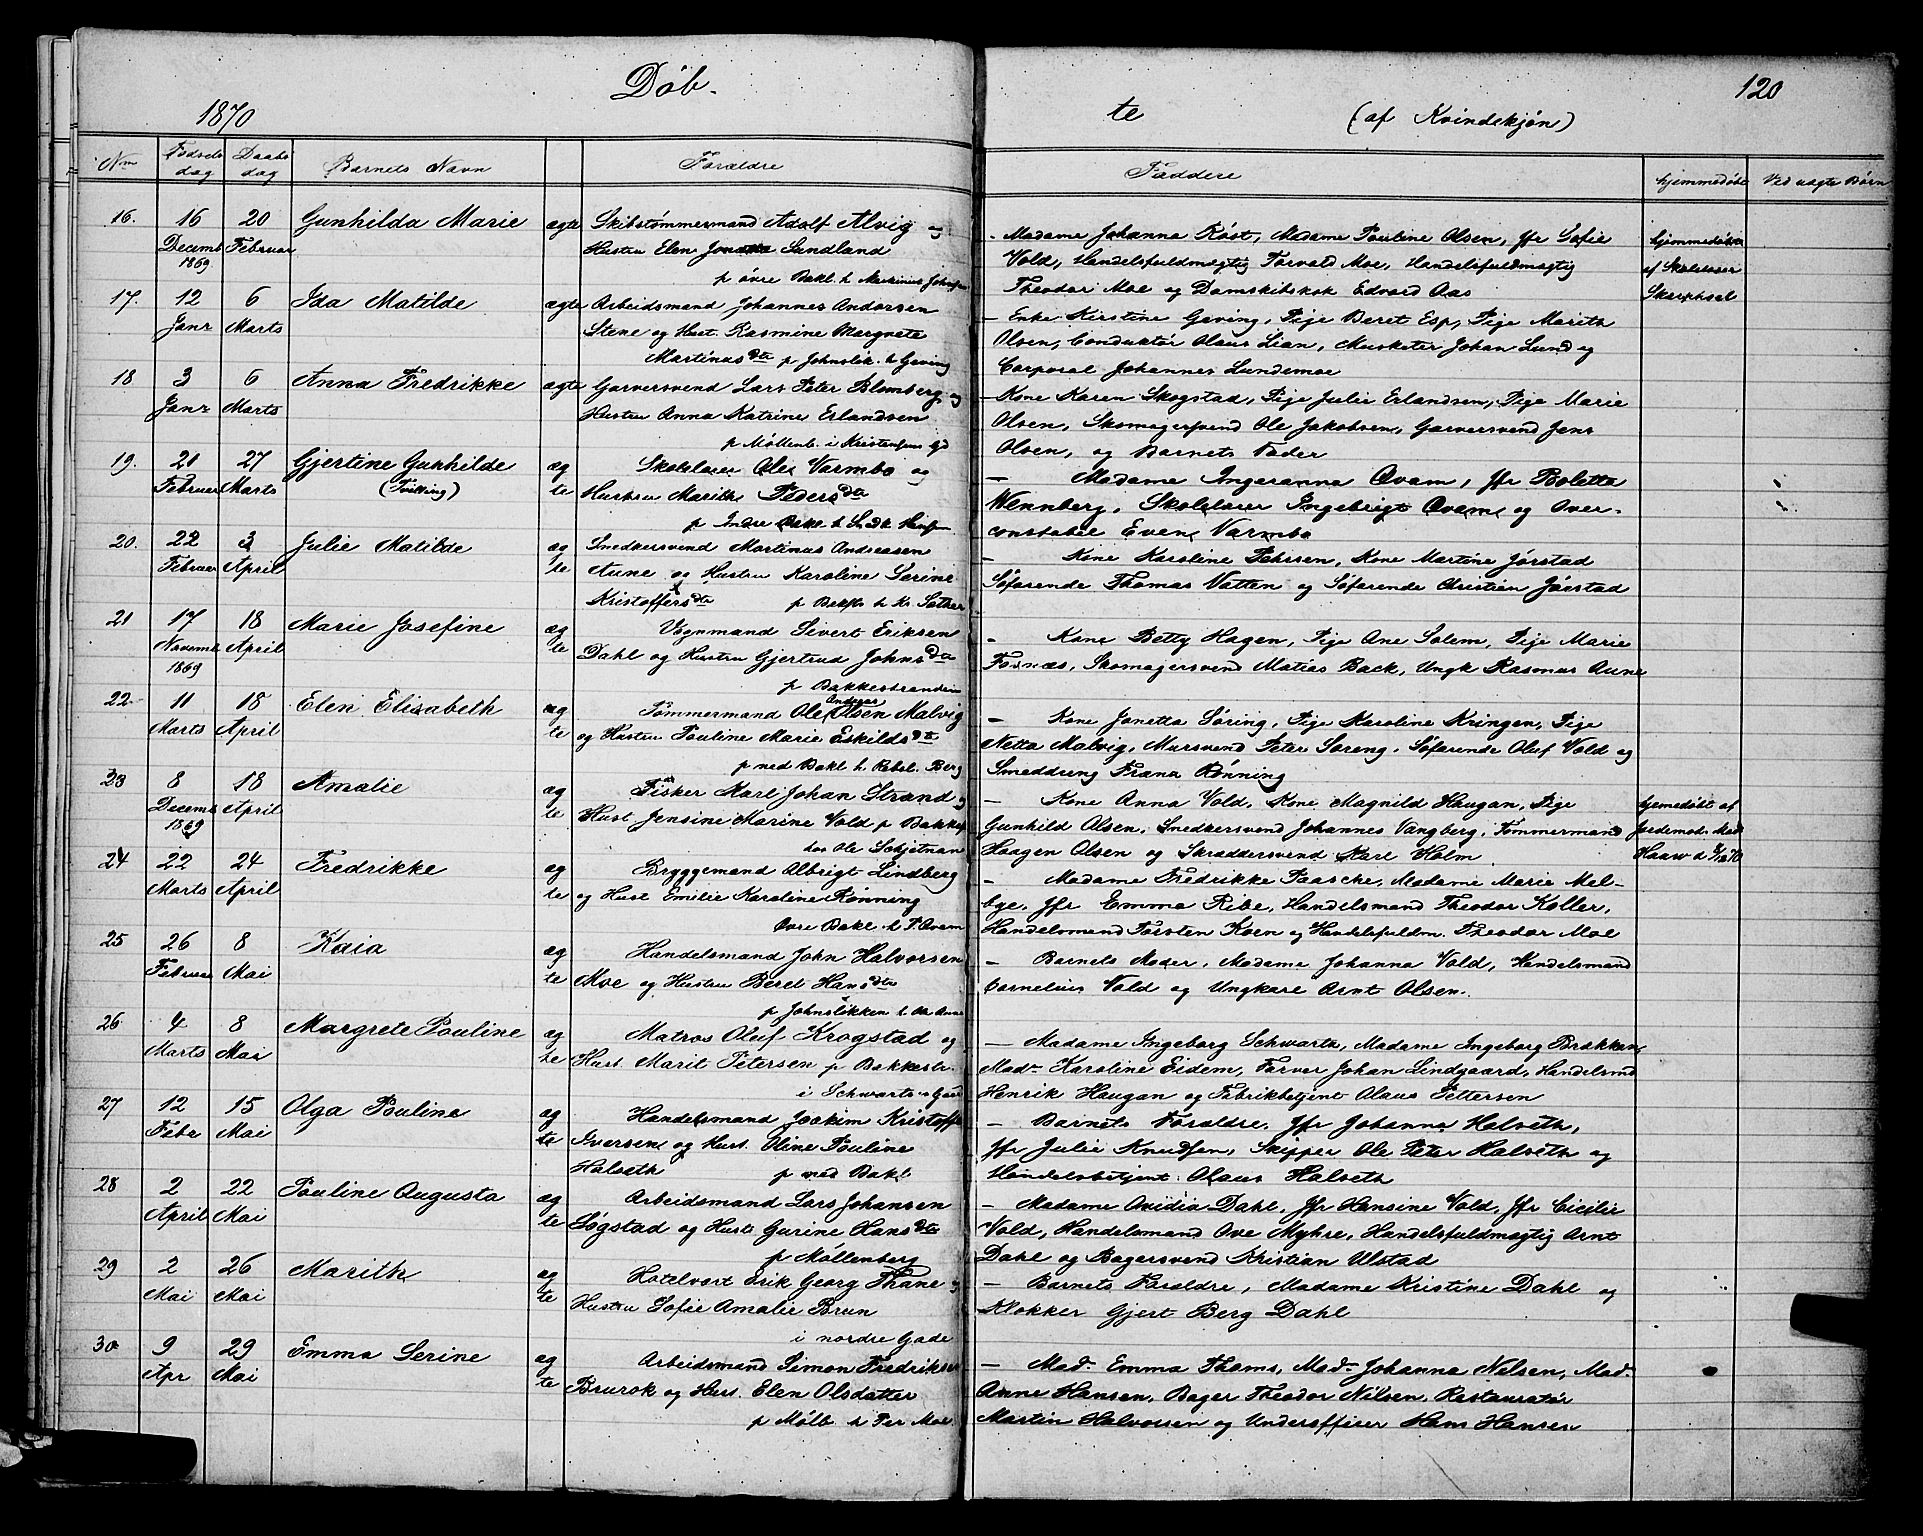 Døb-
te
(af Kvindekjøn)
120
1870
Nm
Fødsels
dag
Daabs
dag
Barnets Navn
Forældre
Faddere
hjemmedøbt
Ved uægte Børn
16.
16
Decemb
1869
20
Februar
Gunhilda Marie
ægte
Skibstømmermand Adolf Alvig og
Hustru Elen Sundland
p øvre Bakl. h Markinius
- Madame Johanna Røst, Madame Pauline Olsen, Jfr Sofie
Vold, Handelsfuldmægtig Torvald Moe, Handelsfuldmægtig
Theodor Moe og Damskibskok Edvard Aas
hjemmedøbt
af Skolelærer
17.
12
Janr
6
Marts
Ida Matilde
ægte
Arbeidsmand Johannes Andersen
Stene og Hust. Rasmine Margrete
Martinusdtr p Johnsløk. h Geving
- Enke Kirstine Geving, Pige Beret Esp, Pige Marith
Olsen, Conduktør Olaus Lian, Musketer Johan Lund og
Corporal Johannes Lundemoe
18
3
Janr
6
Marts
Anna Fredrikke
ægte
Garversvend Lars Peter Blomberg og
Hustru Anna Katrine Erlandsen
p Møllenb. i Kristensens Gd
- Kone Karen Skogstad, Pige Julie Erlandsen, Pige Marie
Olsen, Skomagersvend Ole Jakobsen, Garversvend Jens
Olsen, og Barnets Fader
19.
21
Februar
27
Marts
Gjertine Gunhilde
(Tvilling)
æg
te
Skolelærer Ole Varmbo og
Hustru Marith Pedersdtr
p Indre Bakl h
- Madame Ingeranna Qvam, Jfr Boletta
Wennberg, Skolelærer Ingebrigt Qvam og Over-
constabel Even Varmbo
20.
22
Februar
3
April
Julie Matilde
æg
te
Snedkersvend Martinus Andreasen
Aune og Hustru Karoline Serine
Kristoffersdtr p Bakl. h Kr. Sæther
- Kone Karoline Petersen, Kone Martine Jørstad
Søfarende Thomas Vatten og Søfarende Christian Jørstad
21
17
Novemb
1869
18
April
Marie Josefine
æg
te
Vognmand Sivert Eriksen
Dahl og Hustru Gjertrud Johnsdtr
p Bakkestranden
- Kone Betty Hagen, Pige Ane Solem, Pige Marie
Fosnæs, Skomagersvend Matias Back, Ungk Rasmus Aune
22
11
Marts
18
April
Elen Elisabeth
æg
te
Andreas
Tømmermand Ole Olsen Malvig
og Hustru Pauline Marie Eskildsdtr
p ned Bakl h Rebsl. Berg
- Kone Janetta Søring, Pige Karoline Kringen, Pige
Netta Malvig, Mursvend Peter Søreng, Søfarende Oluf Vold og
Smeddreng Frans Rønning
23
8
Decemb
1869
18
April
Amalie
æg
te
Fisker Karl Johan Strand og
Hust Jensine Marine Vold p Bakkest
hos Ole Schjetnan
- Kone Anna Vold, Kone Magnild Haugan, Pige
Gunhild Olsen, Snedkersvend Johannes Vangberg, Tømmermand
Haagen Olsen og Skræddersvend Karl Holm
hjemmedøbt af
Jordemor Mad
24
22
Marts
24
April
Fredrikke
æg
te
Bryggemand Albrigt Lindberg
og Hust Emilie Karoline Rønning
Øvre Bakl h P. Qvam
- Madame Fredrikke Paasche, Madame Marie Mel-
bye, Jfr Emma Ribe, Handelsmand Theodor Koller,
Handelsmand Torsten Koen og Handelsfuldm. Theodor Moe
25
26
Februar
8
Mai
Kaia
æg
te
Handelsmand John Halvorsen
Moe og Hustru Beret Hansdtr
p Johnsløkken h Ole Aune
- Barnets Moder, Madame Johanna Vold, Handelsmand
Cornelius Vold og Ungkare Arnt Olsen.
26
4
Marts
8
Mai
Margrete Pauline
æg
te
Matros Oluf Krogstad og
Hust. Marit Petersen p Bakkestr.
i Schwarts's Gaard
- Madame Ingeborg Schwarts, Madame Ingeborg Brækkan,
Madm Karoline Eidem, Farver Johan Lindgaard, Handelsmd
Henrik Haugan og Fabrikbetjent Olaus Pettersen
27
12
Febr
15
Mai
Olga Pauline
æg
te
Handelsmand Joakim Kristoffer
Iversen og Hust. Oline Pauline
Halseth p ned Bakl
- Barnets Forældre, Jfr Johanna Halseth,
Jfr Julie Knudsen, Skipper Ole Peter Halseth og
Handelsbetjent Olaus Halseth
28
2
April
22
Mai
Pauline Augusta
æg
te
Arbeidsmand Lars Johansen
Søgstad og Hustr Gurine Hansdtr
p Møllenberg
- Madame Ovidia Dahl, Jfr Hansine Vold, Jfr Cicilie
Vold, Handelsmand Ove Myhre, Handelsfuldmægtig Arnt
Dahl og Bagersvend Kristian Ulstad
29
2
Mai
26
Mai
Marith
æg
te
Hotelvært Erik Georg Thane og
Hustru Sofie Amalie Brun
i nordre Gade
- Barnets Forældre, Madame Kristine Dahl og
Klokker Gjert Berg Dahl
30
9
Apr
29
Mai
Emma Serine
æg
te
Arbeidsmand Simon Fredriksen
Brurok og Hust. Elen Olsdatter
p Mølb h Per Moe
- Madm Emma Thams, Madm Johanna Nilsen, Madm
Anne Hansen, Bager Theodor Nilsen, Restauratør
Martin Halvorsen og Underofficer Hans Hansen